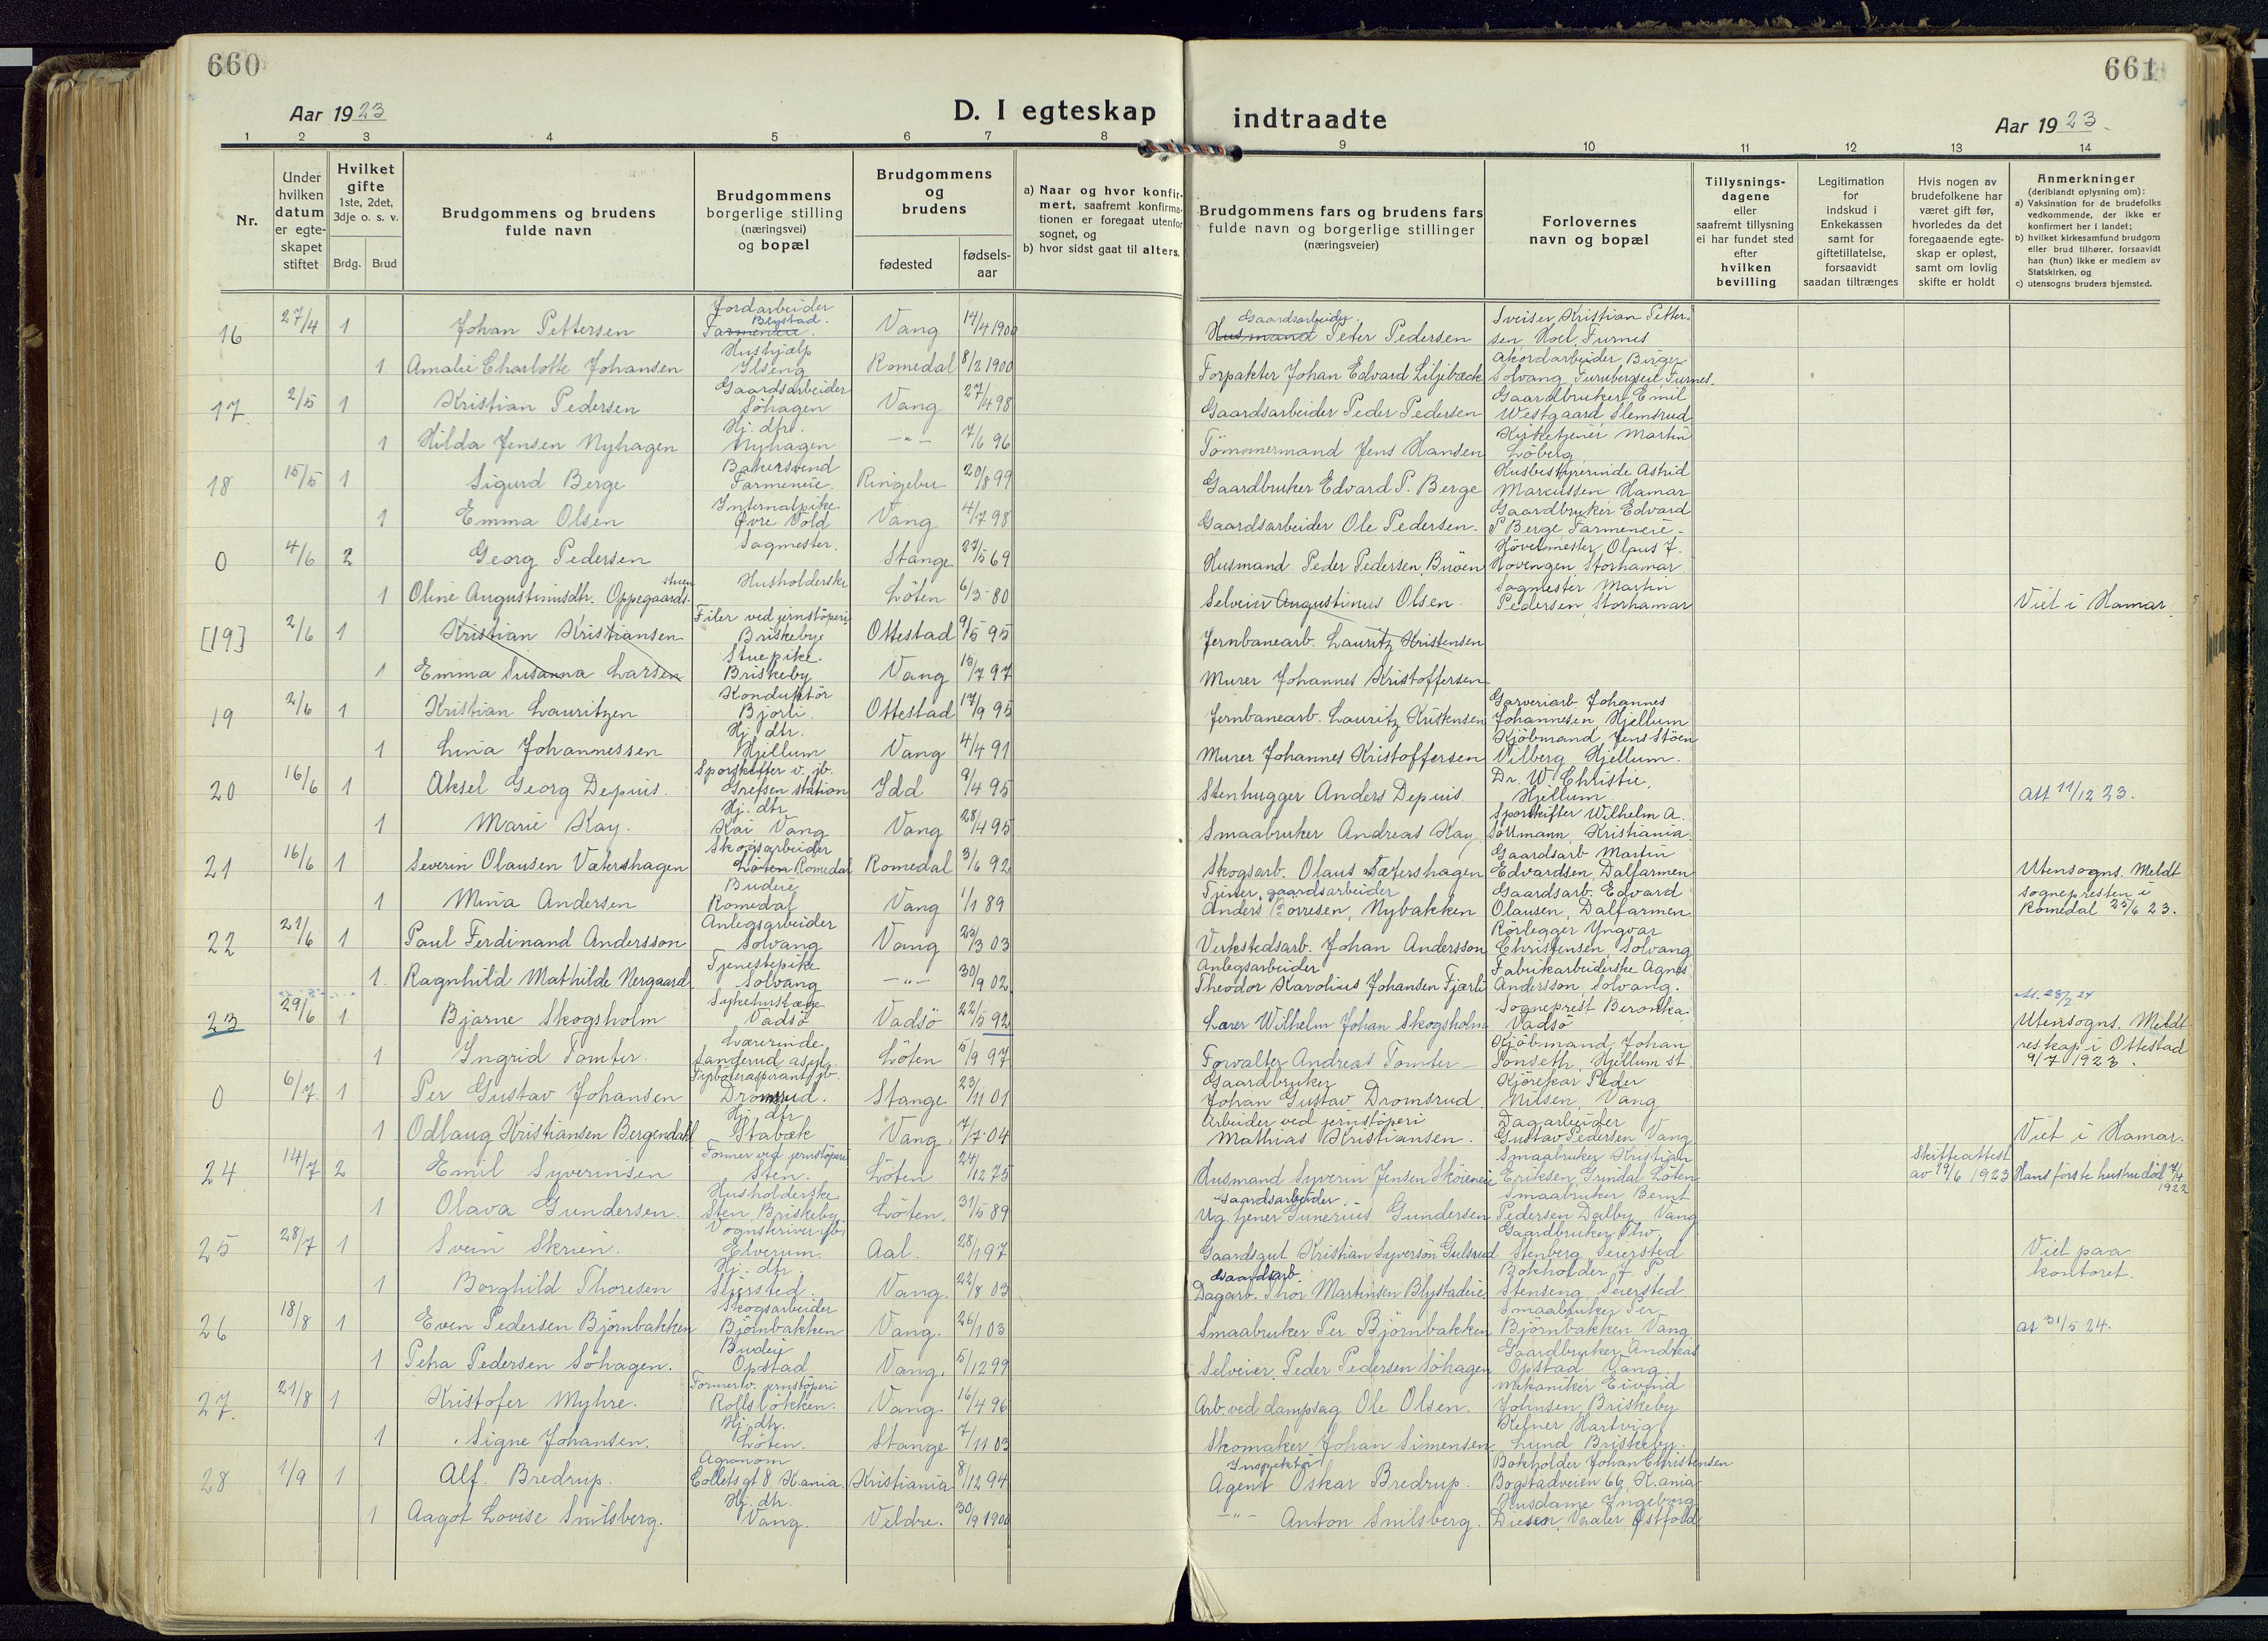 660
661
Aar 1923
D. I egteskap indtraadte
Aar 1923.
1 2 3 4 5 6 7 8 9 10 11 12 13 14
Nr.
Under hvilken datum er egteskapet stiftet
Hvilket gifte 1ste, 2det, 3dje o. s. v.
Brdg. Brud
Brudgommens og brudens fulde navn
Brudgommens borgerlige stilling (næringsvei) og bopæl
Brudgommens og brudens
fødested
fødsels-aar
a) Naar og hvor konfirmert, saafremt konfirmationen er foregaat utenfor sognet, og
b) hvor sidst gaat til alters.
Brudgommens fars og brudens fars fulde navn og borgerlige stillinger (næringsveier)
Forlovernes navn og bopæl
Tillysningsdagene eller saafremt tillysning ei har fundet sted efter hvilken bevilling
Legitimation for indskud i Enkekassen samt for giftetillatelse, forsaavidt saadan tiltrænges
Hvis nogen av brudefolkene har været gift før, hvorledes da det foregaaende egteskap er opløst, samt om lovlig skifte er holdt
Anmerkninger (deriblandt oplysning om):
a) Vaksination for de brudefolks vedkommende, der ikke er konfirmert her i landet;
b) hvilket kirkesamfund brudgom eller brud tilhører, forsaavidt han (hun) ikke er medlem av Statskirken, og
c) utensogns bruders hjemsted.
16 27/4 1 Johan Pettersen Jordarbeider Blystad. Farmeneie. Vang 14/4 1900 Gaardsarbeider Husmand Peter Pedersen Sveiser Kristian Pettersen, Hoel, Furnes
1 Amalie Charlotte Johansen Hushjælp Ilseng Romedal 8/2 1900 Forpakter Johan Edvard Liljibæck Akordarbeider Birger Solvang, Furubergseie, Furnes.
17 2/5 1 Kristian Pedersen Gaardsarbeider Söhagen Vang 27/4 98 Gaardsarbeider Peder Pedersen Gaardbruker Emil Westgaard Slemsrud
1 Hilda Jensen Nyhagen Hj. dtr. Nyhagen -"- 7/6 96 Tömmermand Jens Hansen Kirketjener Martin Löberg
18 15/5 1 Sigurd Berge Bakersvend Farmeneie. Ringebu 20/8 99 Gaardbruker Edvard P. Berge Husbestyrerinde Astrid Marcussen Hamar
1 Emma Olsen Internatpike Övre Vold Vang 4/7 98 Gaardsarbeider Ole Pedersen. Gaardbruker Edvard P Berge Farmeneie-
0 4/6 2 Georg Pedersen Sagmester. Stange 27/5 69 Husmand Peder Pedersen, Buöen Hövelmester Olaus J. Hovengen Storhamar
1 Oline Augustinusdtr. Oppegaardsstuen Husholderske Löten 6/3-80 Selveier Augustinus Olsen. Sagmester Martin Pedersen, Storhamar Viet i Hamar.
[19] 2/6 1 Kristian Kristiansen Filer ved jernstöperi Briskebye Ottestad 9/5 95 Jernbanearb. Lauritz Kristensen
1 Emma Susanna Larsen Stuepike. Briskeby Vang 15/7 97 Murer Johannes Kristoffersen
19 2/6 1 Kristian Lauritzen Konduktör Bjorli Ottestad 17/9 95 Jernbanearb. Lauritz Kristensen Garveriarb. Johannes Johannesen Hjellum
1 Lina Johannessen Hj. dtr. Hjellum Vang 4/4 91 Murer Johannes Kristoffersen Kjöbmand Jens Stöen Vilberg Hjellum.
20 16/6 1 Aksel Georg Depuis. Sporskifter v. jb. Grefsen station Idd 9/4 95 Stenhugger Anders Depuis Dr. W Christie, Hjellum att 11/12 23.
1 Marie Kay. Hj. dtr Kai Vang Vang 28/4 95 Smaabruker Andreas Kay Sporskifter Wilhelm A. Sollmann, Kristiania
21 16/6 1 Severin Olausen Vætershagen Skogsarbeider Löten Romedal Romedal 3/6 92 Skogsarb. Olaus Sætershagen Gaardsarb Martin Edvardsen, Dalfarmen Utensogns. Meldt
1 Mina Andersen Budeie Romedal Vang 1/1 89 Tjener, gaardsarbeider Anders Börresen, Nybakken Gaardsarb. Edvard Olausen, Dalfarmen sognepresten i Romedal 25/6 23.
22 21/6 1 Paul Ferdinand Andersson Anlegsarbeider Solvang Vang 23/3 03 Verkstedsarb. Johan Andersson Rörlegger Yngvar Christensen, Solvang
1. Ragnhild Mathilde Nergaard Tjenestepike Solvang -"- 30/9 02. Anlegsarbeider Theodor Karolius Johansen Fjærli Fabrikarbeiderske Agnes Andersson Solvang.
23 29/6 1 Bjarne Skogsholm Sykehuslæge Vadsö Vadsö 22/5 92 Lærer Wilhelm Johan Skogsholm Sogneprest Beronka Vadsö Utensogns. Meldt
1 Ingrid Tomter. Lærerinde Sanderud asyl. Löten 5/9 97 Forvalter Andreas Tomter- Kjöbmand Johan Sonseth, Hjellum st. res. kap i Ottestad 9/7 1923.
0 6/7 1 Per Gustav Johansen Fyrböteraspirant jb. Dromsrud. Stange 23/11 01 Gaardbruker Johan Gustav Dromsrud Kjörekar Peder Nilsen, Vang
1 Odlaug Kristiansen Bergendahl Hj. dtr Stabæk Vang. 7/7-04 Arbeider ved jernstöperi Mathias Kristiansen. Dagarbeider Gustav Pedersen Vang Viet i Hamar.
24 14/7 2 Emil Syverinsen Former ved jernstöperi Sten. Löten 24/12 75 Husmand Syverin Jensen Sköieneie Smaabruker Kristian Eriksen, Grindal Löten Skifteattest av 19/6 1923 Hans förste hustru död 7/4 1922
1 Olava Gundersen. Husholderske Sten, Briskeby Löten. 31/5 89 Gaardsarbeider Ug. tjener Gunerius Gundersen Smaabruker Bernt Pedersen Dalby, Vang
25 28/7 1 Svein Skrien. Vognskriver jb. Elverum. Aal. 28/1 97 Gaardsgut Kristian Syversön Gulsrud Gaardbruker Stenberg, Seiersted Viet paa
1 Borghild Thoresen Hj. dtr. Seiersted. Vang. 22/8 03 Gaardsarb. Dagarb. Thor Martinsen Blystadeie. Bokholder J. P Stenseng Seiersted kontoret.
26 18/8 1 Even Pedersen Björnbakken Skogsarbeider Björnbakken Vang. 26/1 03 Smaabruker Per Björnbakken Smaabruker Per Björnbakken Vang at 31/5 24.
1 Petra Pedersen Söhagen. Budeie Opstad Vang. 5/12 99 Selveier. Peder Pedersen Söhagen Gaardbruker Andreas Opstad Vang
27. 21/8 1 Kristofer Myhre. Former v. jernstöperi Rollslökken. Vang. 16/4 96 Arb ved dampsag Ole Olsen. Mekaniker Eivind Johnsen, Briskeby
1 Signe Johansen. Hj. dtr. Löten. Stange 7/11 03 Skomaker Johan Simensen Kelner Hartvig Lund Briskeby.
28 1/9 1 Alf. Bredrup. Agronom Collets gt 8 K.ania. Kristiania 8/12 94 Inspektör Agent Oskar Bredrup. Bokholder Johan Christensen Bogstadveien 66, K.ania
1 Aagot Lovise Snilsberg. Hj. dtr. Vang. Veldre. 30/9 1900 -"- Anton Snilsberg. Husdame Ingeborg Diesen, Vaaler Östfold